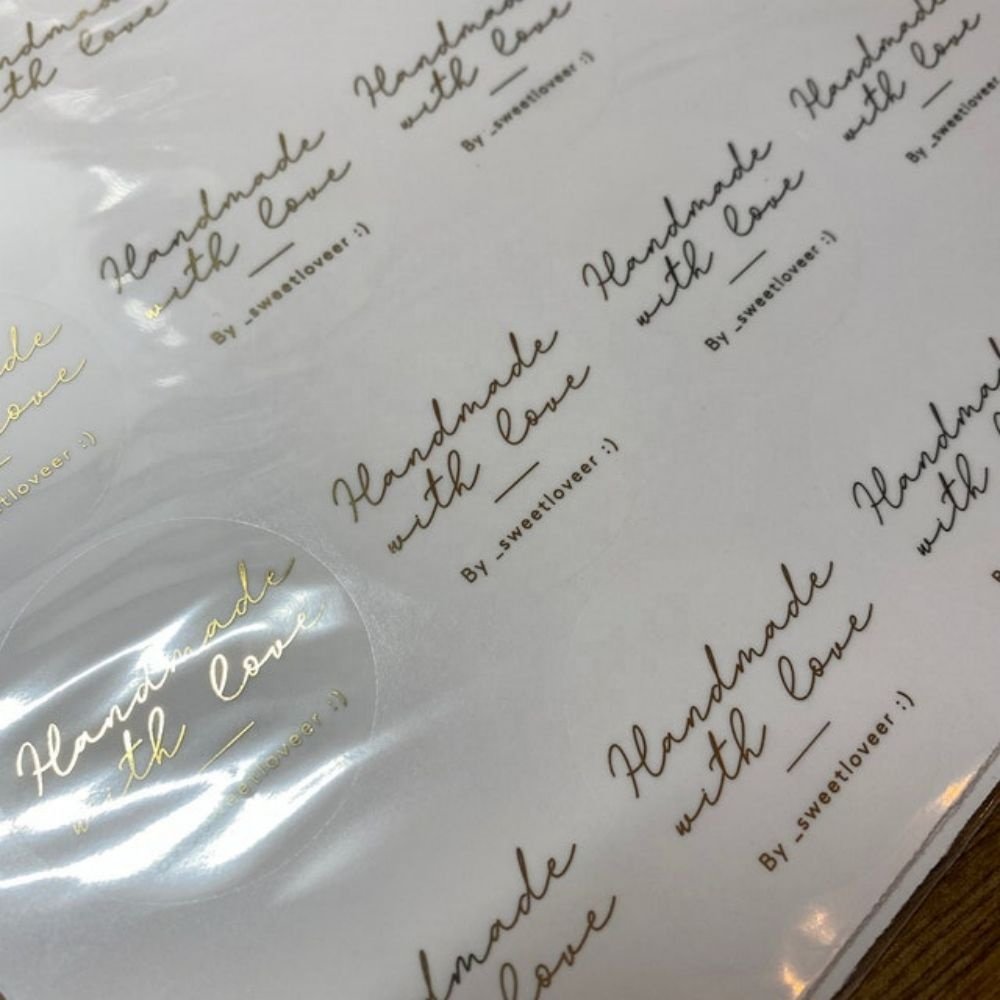 with love
Handmade
with love
By _sweetloveer :)
Handmade
with love
By _sweetloveer
Handmade
with love
By _sweetloveer :)
Handmade
with love
By _sweetloveer :)
love
:)
Handmade
with love
By _sweetloveer :)
with
Handmade
with love
:)
Handmade
with love
By _sweetloveer :)
love